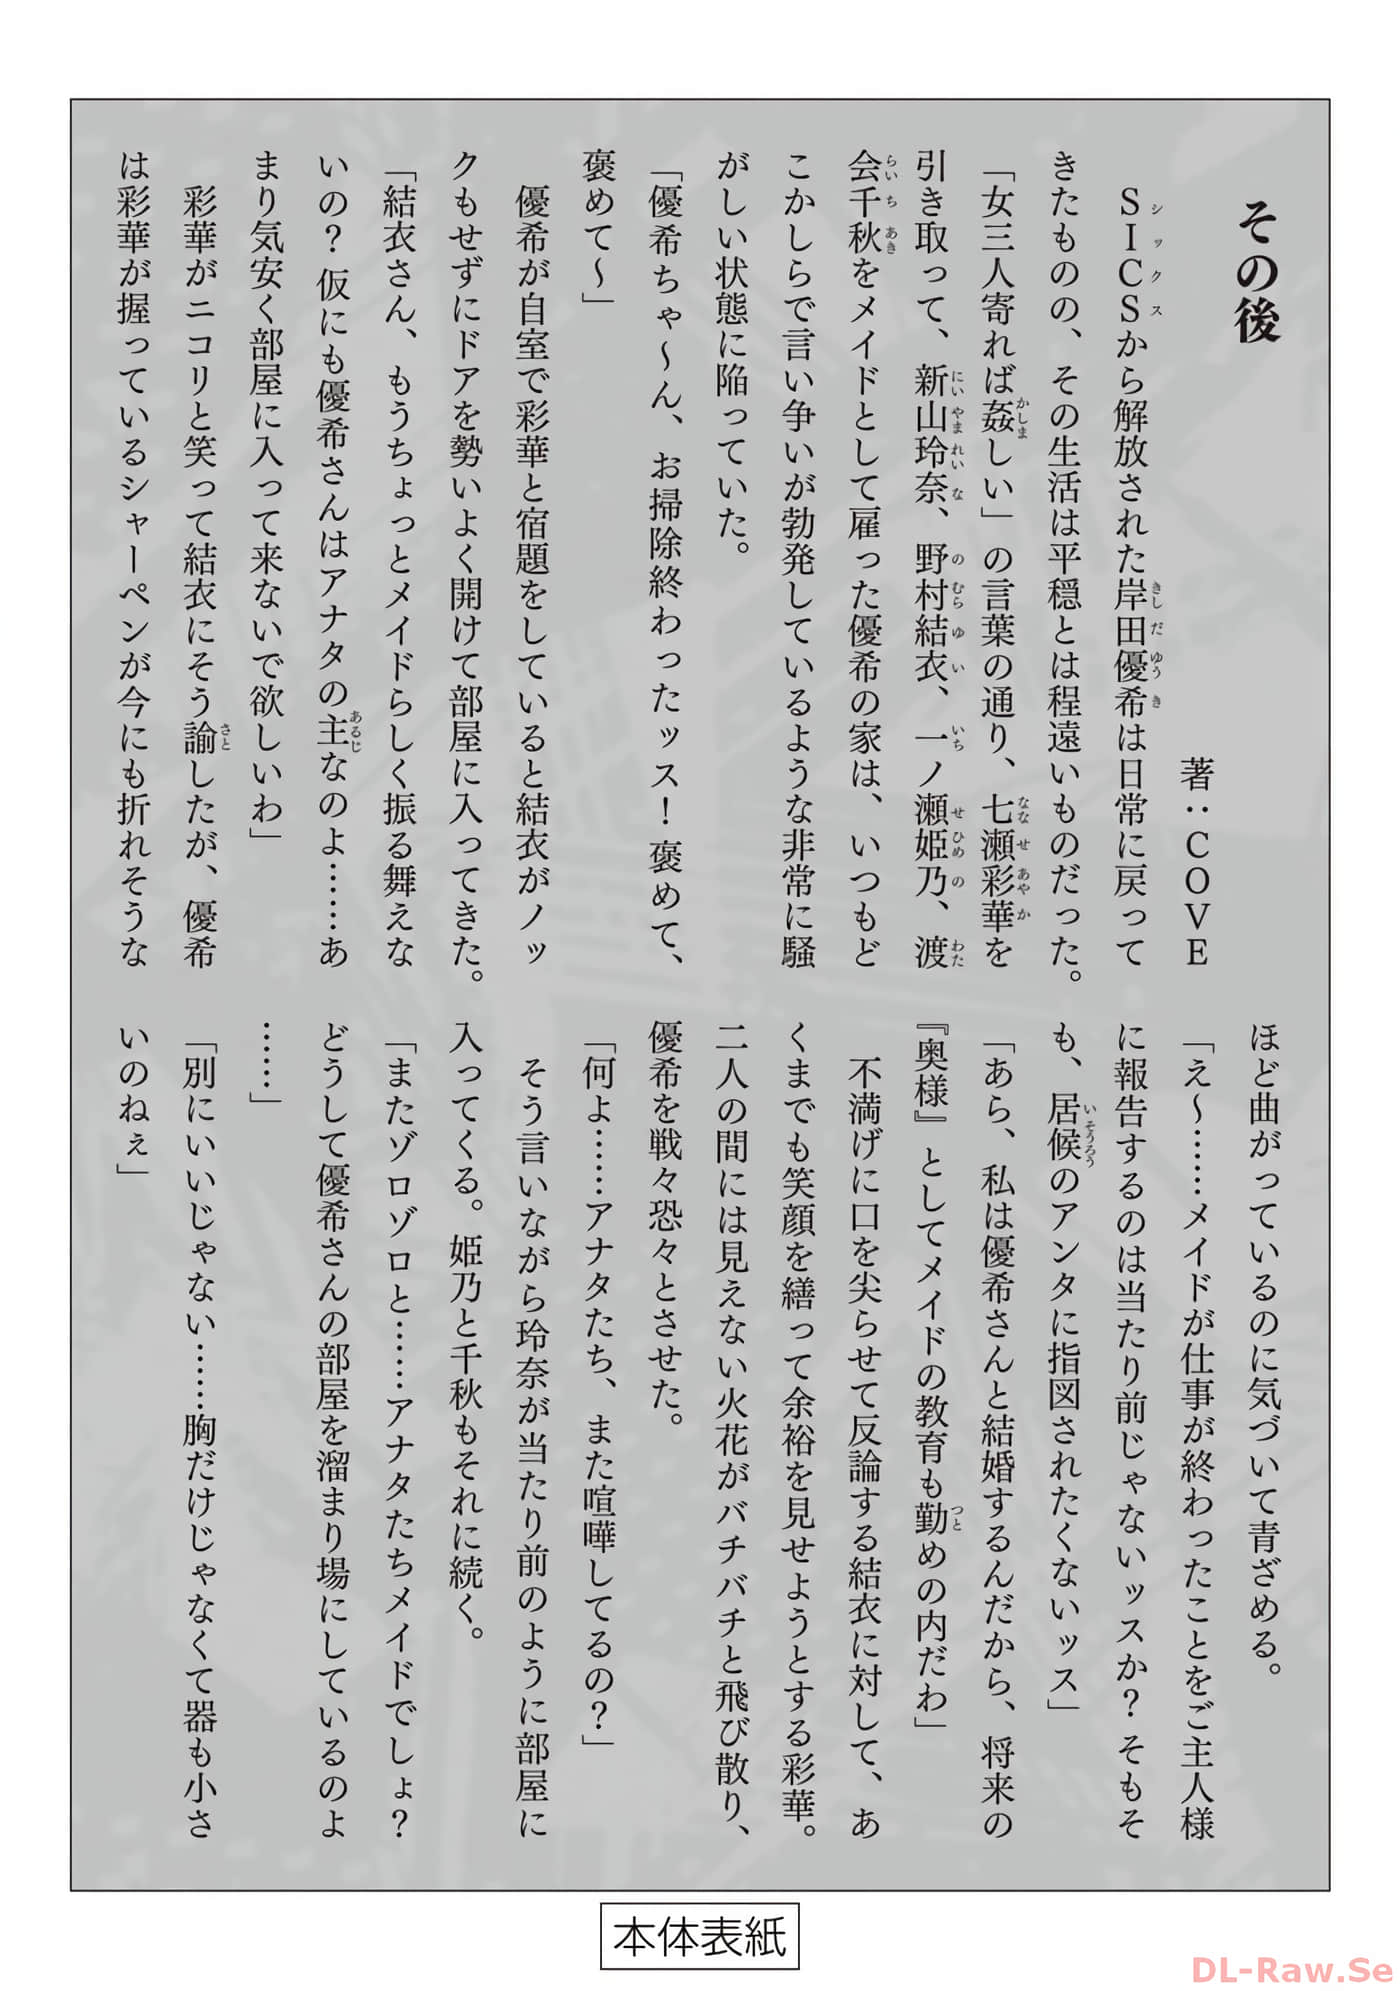 その後
著：COVE
SICSから解放された岸田優希は日常に戻って
きたものの、その生活は平穏とは程遠いものだった。
「女三人寄れば姦しい」の言葉の通り、七瀬彩華を
引き取って、新山玲奈、野村結衣、一ノ瀬姫乃、渡
会千秋をメイドとして雇った優希の家は、いつもど
こかしらで言い争いが勃発しているような非常に騒
がしい状態に陥っていた。
「優希ちゃ～ん、お掃除終わったッス！褒めて、
褒めて～」
優希が自室で彩華と宿題をしていると結衣がノッ
クもせずにドアを勢いよく開けて部屋に入ってきた。
「結衣さん、もうちょっとメイドらしく振る舞えな
いの？仮にも優希さんはアナタの主なのよ……あ
まり気安く部屋に入って来ないで欲しいわ」
彩華がニコリと笑って結衣にそう諭したが、優希
は彩華が握っているシャーペンが今にも折れそうな
ほど曲がっているのに気づいて青ざめる。
「え～……メイドが仕事が終わったことをご主人様
に報告するのは当たり前じゃないッスか？そもそ
も、居候のアンタに指図されたくないッス」
「あら、私は優希さんと結婚するんだから、将来の
『奥様』としてメイドの教育も勤めの内だわ」
不満げに口を尖らせて反論する結衣に対して、あ
くまでも笑顔を繕って余裕を見せようとする彩華。
二人の間には見えない火花がバチバチと飛び散り、
優希を戦々恐々とさせた。
「何よ……アナタたち、また喧嘩してるの？」
そう言いながら玲奈が当たり前のように部屋に
入ってくる。姫乃と千秋もそれに続く。
「またゾロゾロと……アナタたちメイドでしょ？
どうして優希さんの部屋を溜まり場にしているのよ
……」
「別にいいじゃない……胸だけじゃなくて器も小さ
いのねぇ」
本体表紙
DL-Raw.Se